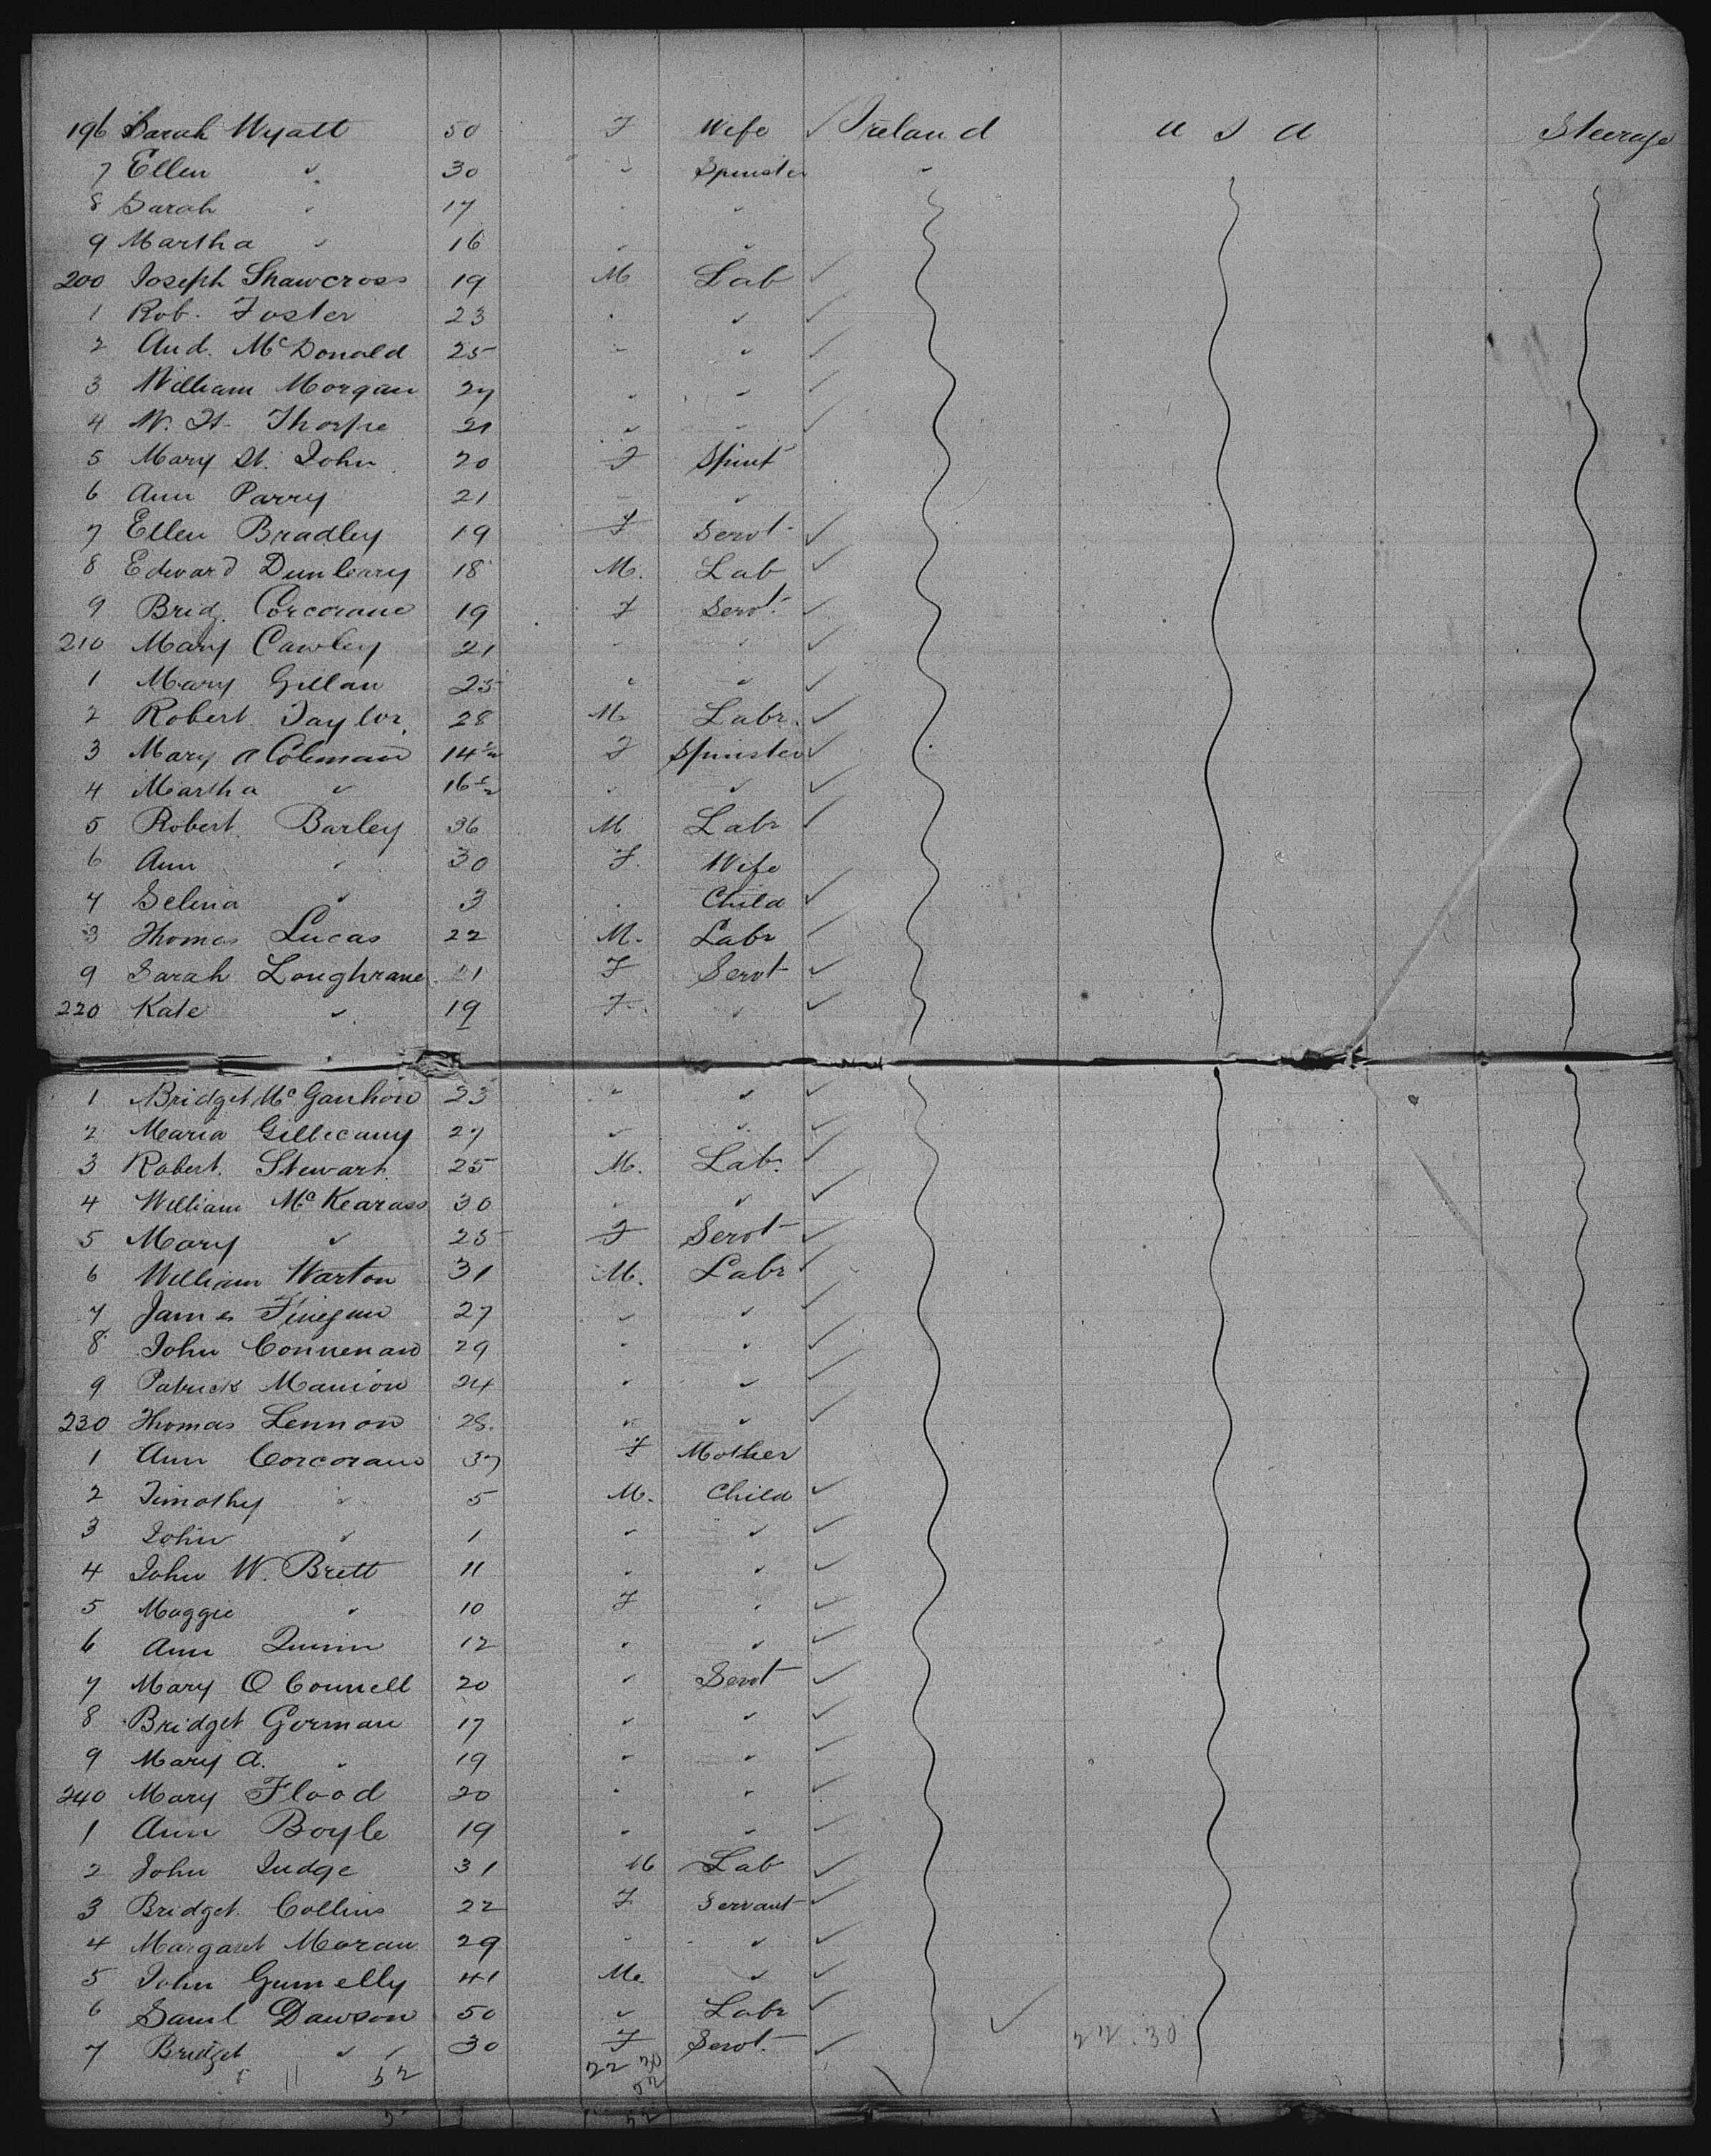 196 Sarah Wyatt 50 F Wife ✓ Ireland U S A Steerage
7 Ellen " 30 " Spinster "
8 Sarah " 17 " "
9 Martha " 16 " "
200 Joseph Shawcross 19 M Lab ✓
1 Rob. Foster 23 " " ✓
2 And. McDonald 25 " " ✓
3 William Morgan 27 " " ✓
4 W. H. Thorpe 21 " " ✓
5 Mary St. John 20 F Spinst
6 Ann Parry 21 " "
7 Ellen Bradley 19 F Servt ✓
8 Edward Dunleavy 18 M. Lab ✓
9 Brid. Corcorane 19 F Servt. ✓
210 Mary Cawley 21 " " ✓
1 Mary Gillan 25 " " ✓
2 Robert Taylor 28 M Labr. ✓
3 Mary A Coleman 14½ F Spinster ✓
4 Martha " 16½ " " ✓
5 Robert Barley 36 M Labr ✓
6 Ann " 30 F. Wife
7 Selina " 3 " Child ✓
8 Thomas Lucas 22 M. Labr ✓
9 Sarah Loughrane 21 F Servt ✓
220 Kate " 19 F " ✓
1 Bridget 23 " " ✓
2 Maria 27 " " ✓
3 Robert Stewart 25 M. Lab. ✓
4 William 30 " " ✓
5 Mary " 25 F Servt ✓
6 William Warton 31 M. Labr ✓
7 James Finegan 27 " " ✓
8 John 29 " " ✓
9 Patrick Manion 24 " " ✓
230 Thomas Lennon 28. " " ✓
1 Ann Corcoran 37 F Mother
2 Timothy " 5 M. Child ✓
3 John " 1 " " ✓
4 John W. Brett 11 " " ✓
5 Maggie " 10 F " ✓
6 Ann Quinn 12 " " ✓
7 Mary O Connell 20 " Servt ✓
8 Bridget Gorman 17 " " ✓
9 Mary A. " 19 " " ✓
240 Mary Flood 20 " " ✓
1 Ann Boyle 19 " " ✓
2 John Judge 31 M Lab ✓
3 Bridget Collins 22 F Servant ✓
4 Margaret Moran 29 " " ✓
5 John 41 M. " ✓
6 Saml Dawson 50 " Labr ✓
7 Bridget " 30 F Servt. ✓
52 22 30
52